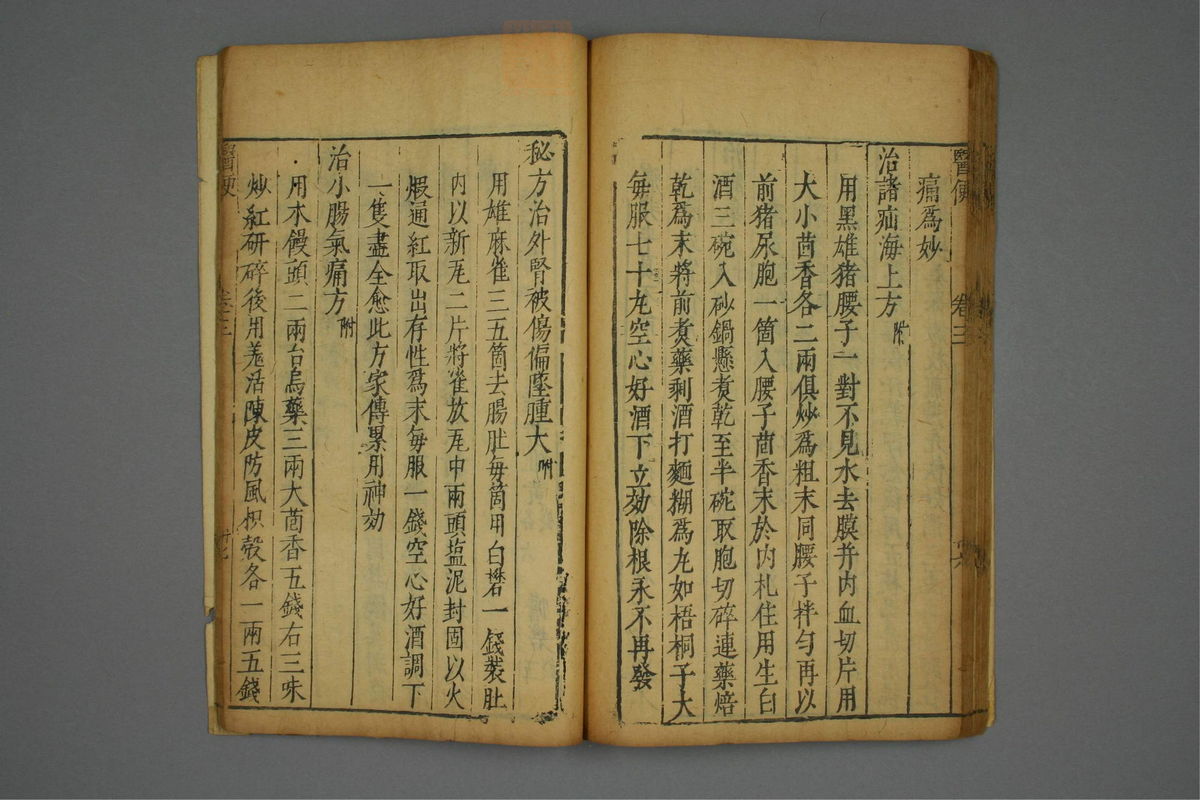 醫便
卷三
痛爲妙
治諸疝海上方 附
用黑雄猪腰子一對不見水去膜并内血切片用
大小茴香各二兩俱炒爲粗末同腰子拌勻再以
前猪尿胞一箇入腰子茴香末於内札住用生白
酒三碗入砂鍋懸煮乾至半碗取胞切碎連藥焙
乾爲末將前煮藥剩酒打麵糊爲丸如梧桐子大
每服七十丸空心好酒下立効除根永不再發
秘方治外腎被傷偏墜腫大 附
用雄麻雀三五箇去腸肚每箇用白礬一錢裝肚
内以新瓦二片將雀放瓦中兩頭塩泥封固以火
煆通紅取出存性爲末每服一錢空心好酒調下
一隻盡全愈此方家傳累用神効
治小腸氣痛方 附
用木饅頭二兩台烏藥三兩大茴香五錢右三味
炒紅研碎後用羗活陳皮防風枳殼各一兩五錢
醫便
卷之三
廿七